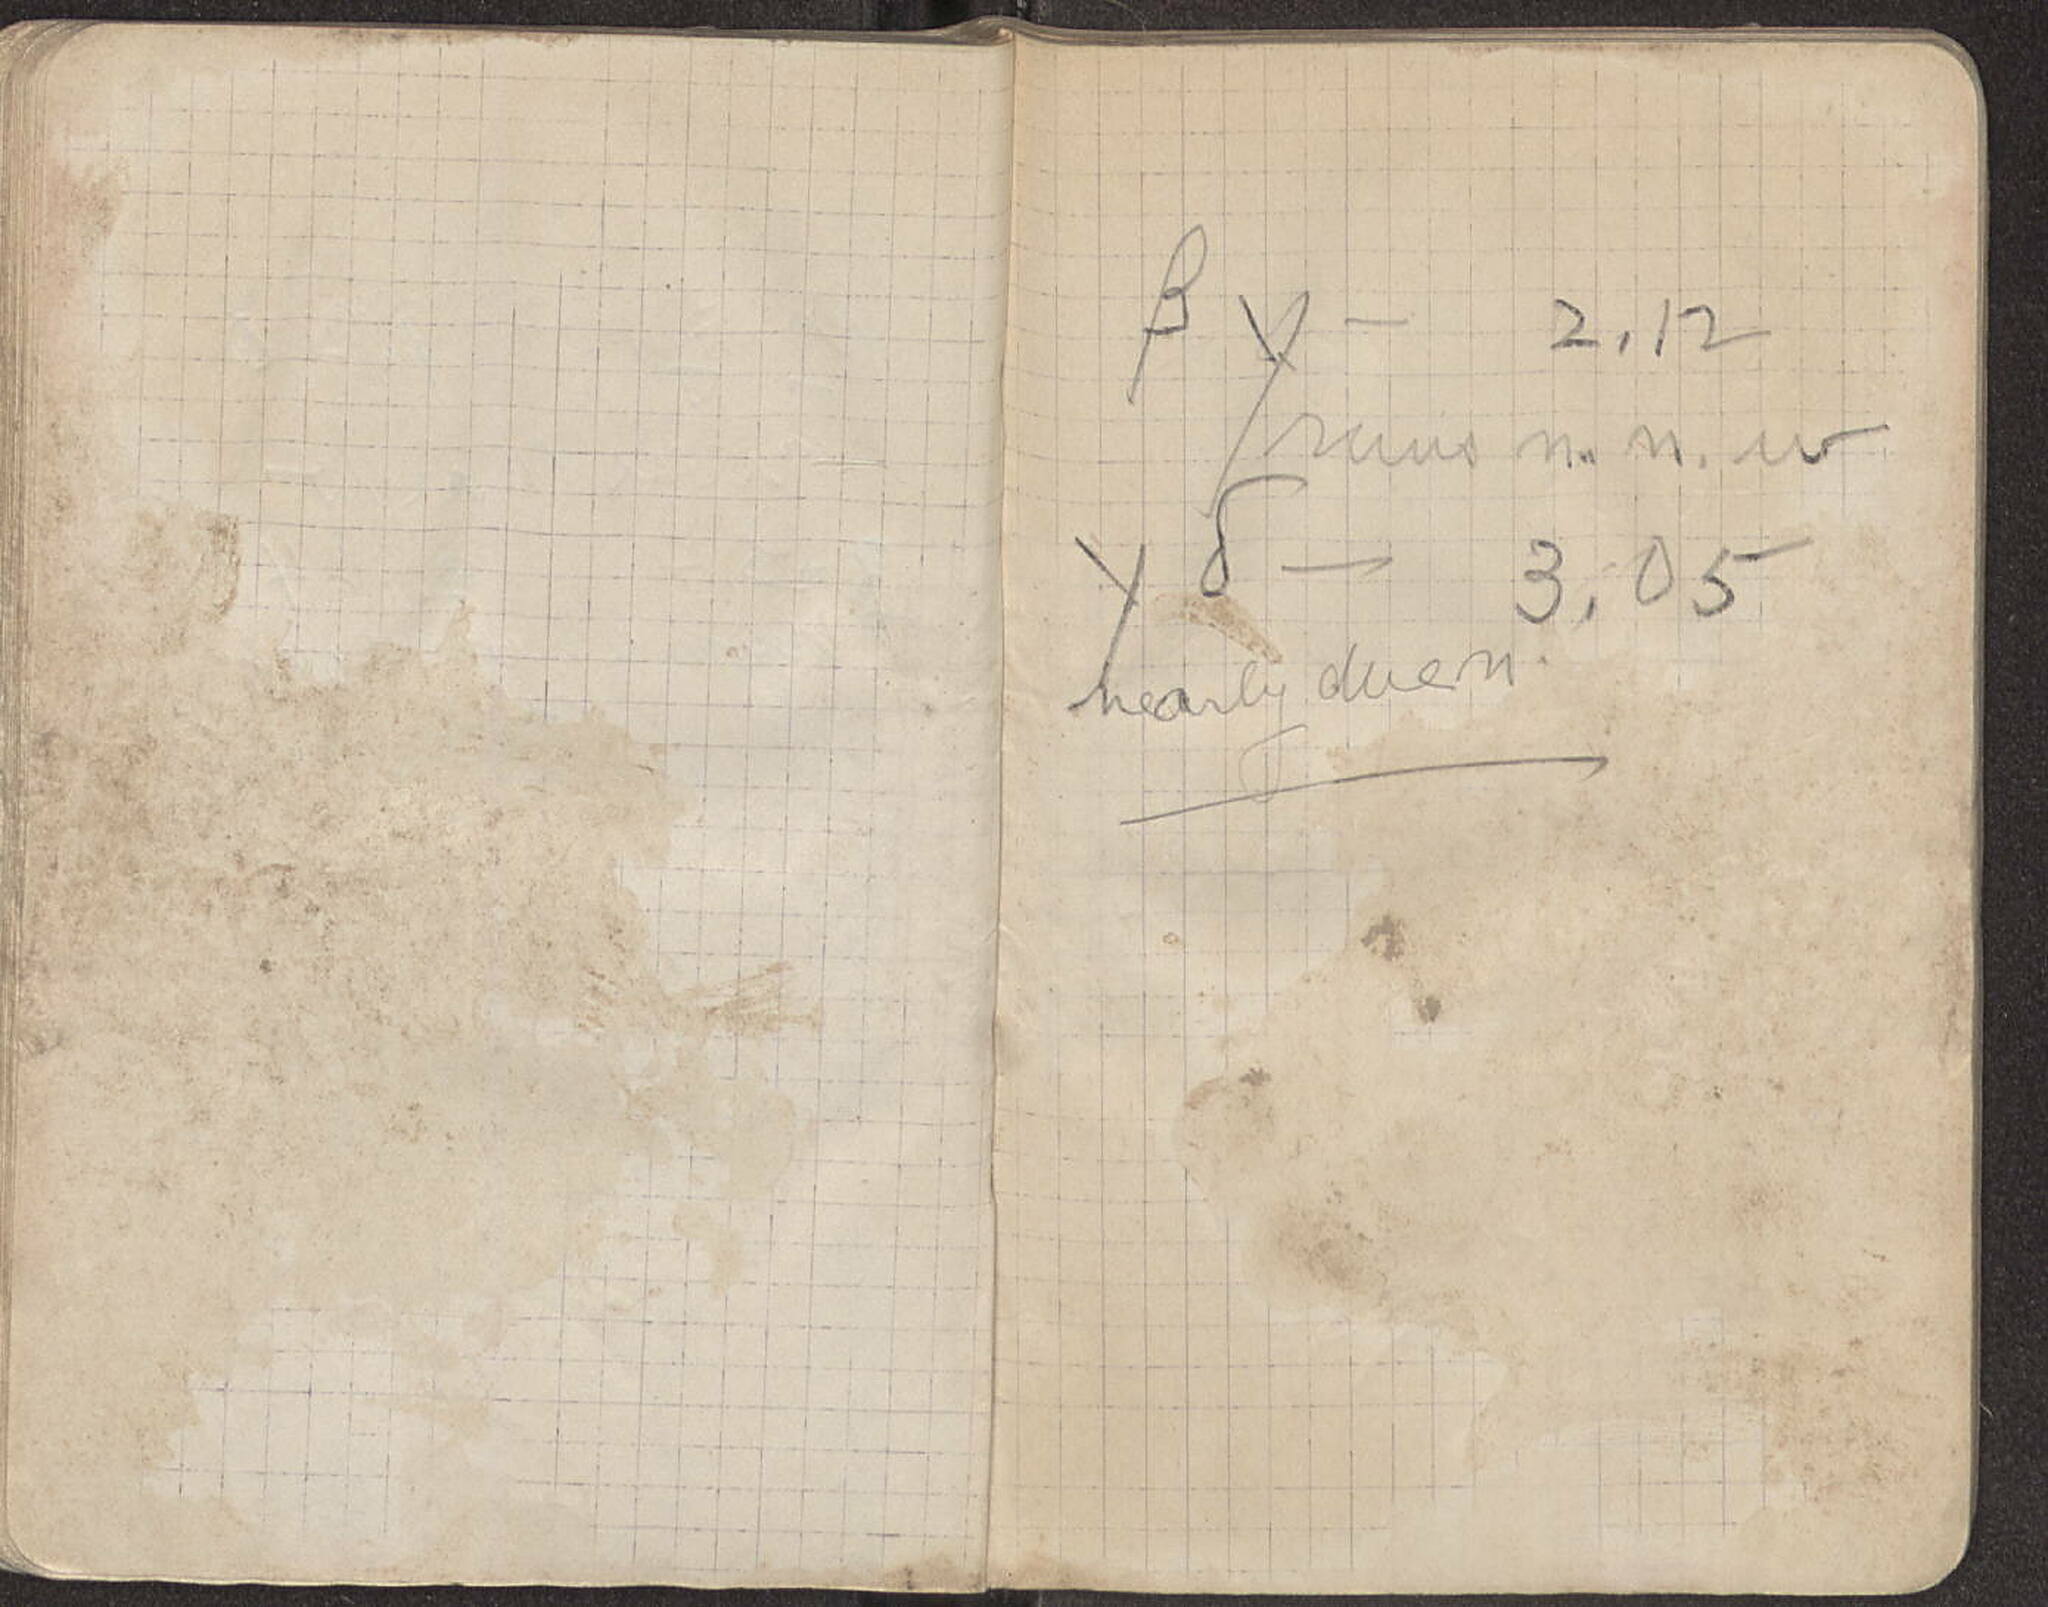 βγ – 2,12
runs n. n. w
γδ – 3,05
nearly due n.